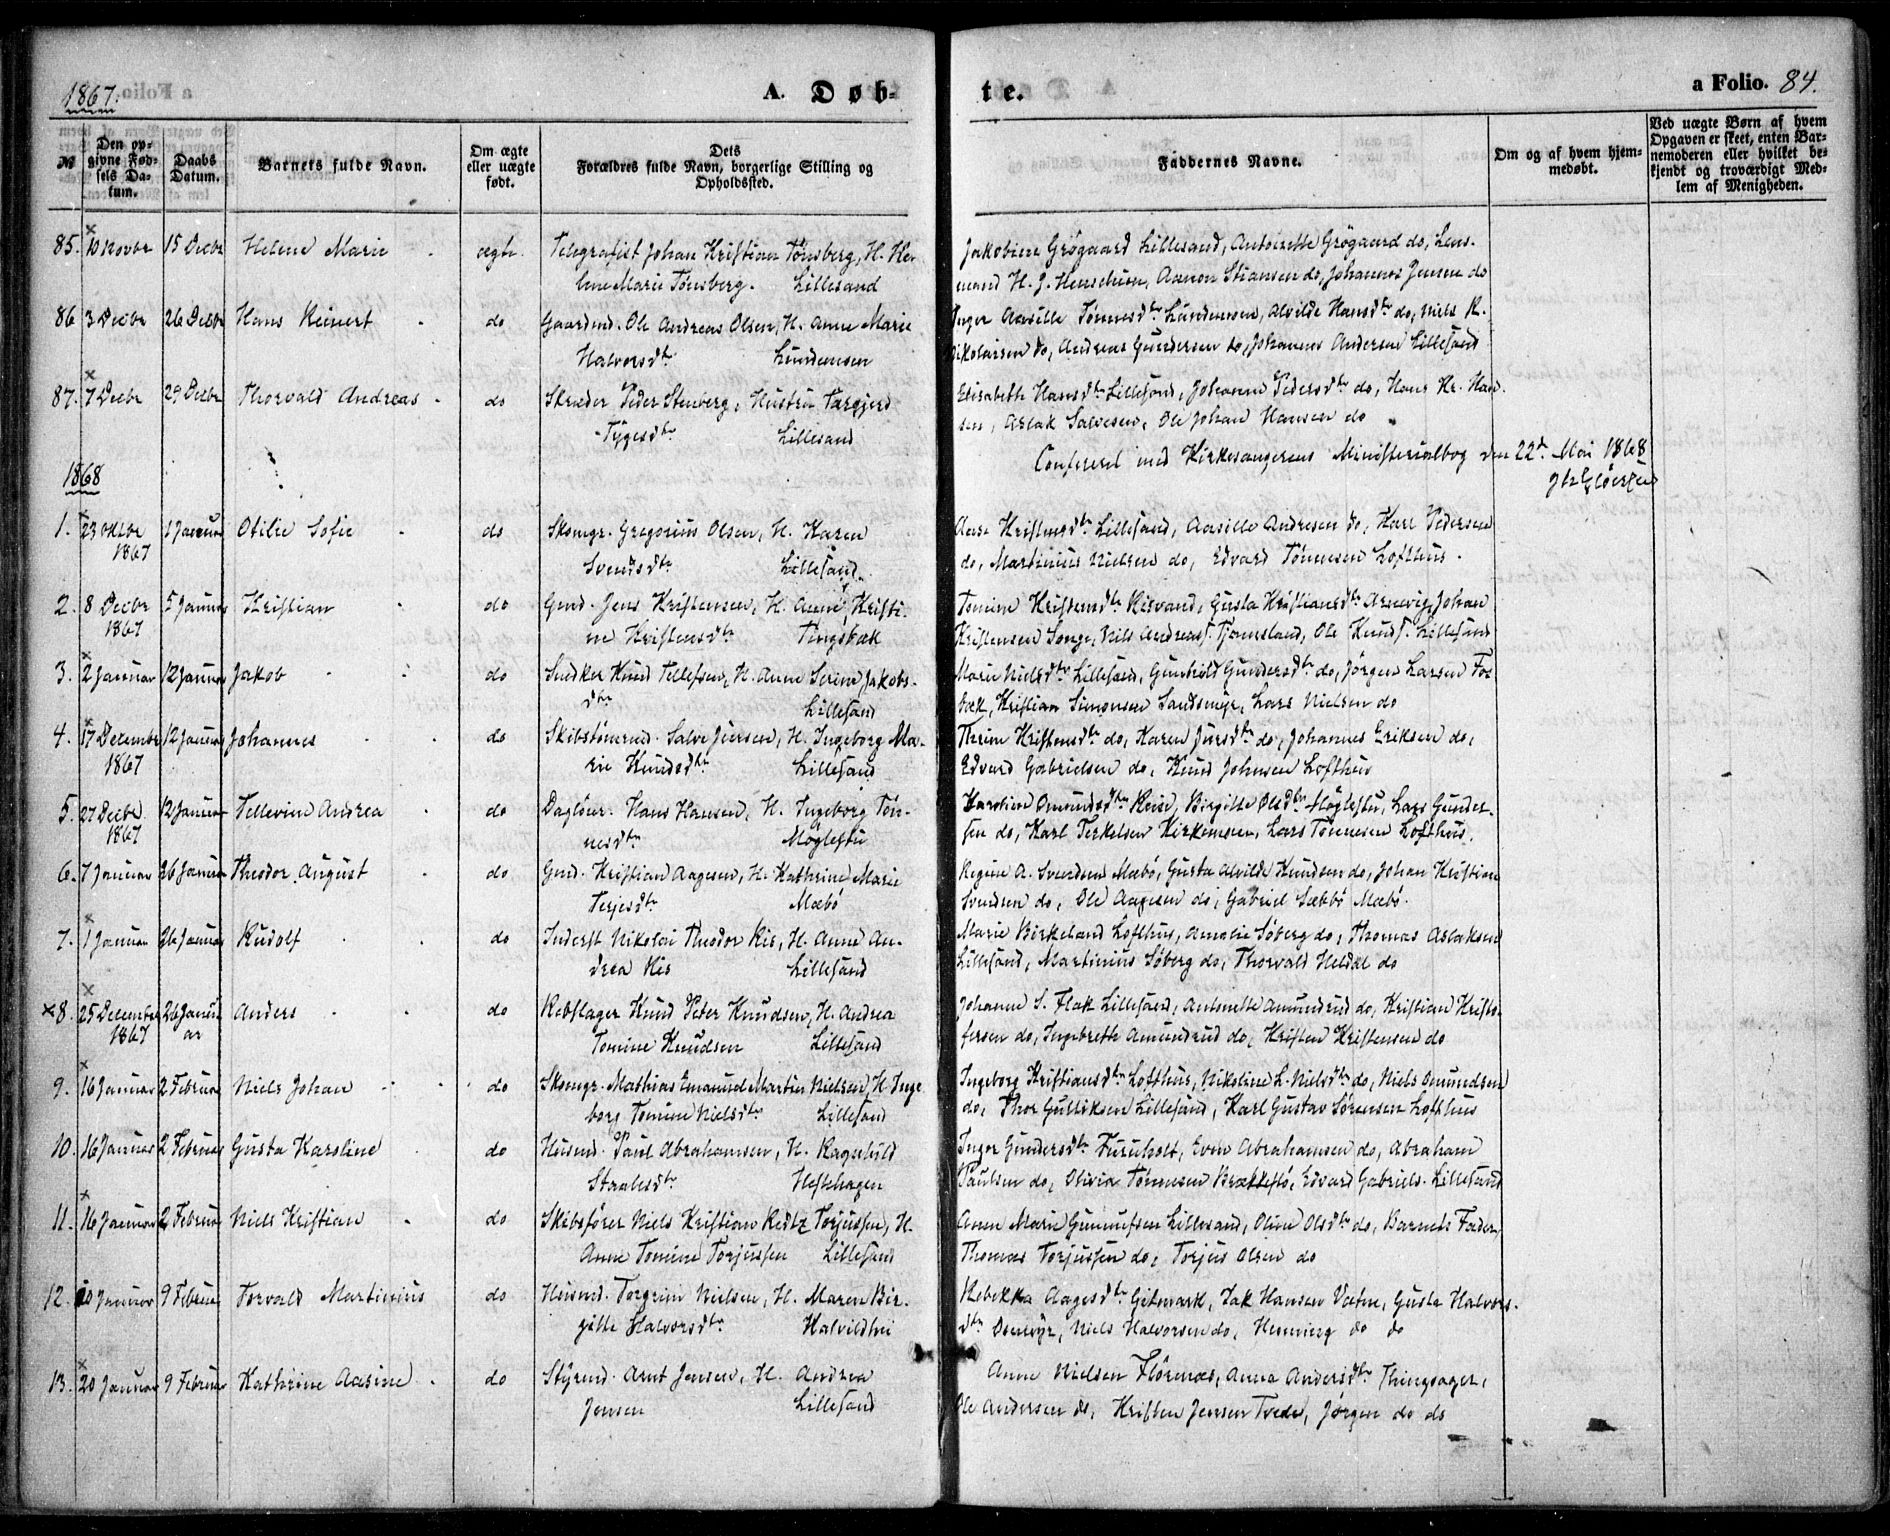 1867.
A. Døb-
te.
a Folio. 84.
№
Den op-
givne Fød-
sels Da-
tum.
Daabs
Datum.
Barnets fulde Navn.
Om ægte
eller uægte
født.
Dets
Forældres fulde Navn, borgerlige Stilling og
Opholdssted.
Faddernes Navne.
Om og af hvem hjem-
medøbt.
Ved uægte Børn af hvem
Opgaven er skeet, enten Bar-
nemoderen eller hvilket be-
kjendt og troværdigt Med-
lem af Menigheden.
85. 10 Novbr 15 Decbr Helene Marie ægte. Telegrafist Johan Kristian Tønsberg, H. He-
lene Marie Tønsberg. Lillesand
Jakobine Grøgaard Lillesand, Antoinette Grøgaard do, Lens-
mand H. J. Henschien, Aanon Stiansen do, Johannes Jensen do
86 3 Decbr 26 Decbr Hans Reinert do Gaardmd. Ole Andreas Olsen, H. Anne Marie
Halvorsdtr Lundemoen
Inger Aasille Tønnesdtr Lundemoen, Alvilde Hansdtr do, Niels R.
Nikolaisen do, Andreas Gundersen do, Johannes Andersen Lillesand
87. 7 Decbr 29 Decbr Thorvald Andreas do Skræder Peder Stenberg, Hustru Targjerd
Tygesdtr Lillesand
Elisabeth Hansdtr Lillesand, Johanne Pedersdtr do, Hans Kr. Han-
sen, Aslak Salvesen, Ole Johan Hansen do
Confereret med Kirkesangerens Ministerialbog den 22d Mai 1868
1868
1. 23 Oktbr 1 Januar Otilie Sofie do Skomgr. Gregorius Olsen, H. Karen
1867 Svendsdtr Lillesand.
Aase Kristensdtr Lillesand, Aasille Andresen do, Karl Pedersen
do, Martinius Nielsen do, Edvard Tønnesen Lofthus.
2. 8 Decbr 5 Januar Kristian do Gmd. Jens Kristensen, H. Anne Kristi-
1867 ne Kristensdtr Tingsbæk
Tomine Kristensdtr Risvand, Gusta Kristiansdtr Arnevig, Johan
Kristensen Songe, Nils Andreas. Tjomsland, Ole Knuds. Lillesand
3. 2 Januar 12 Januar Jakob do Snedker Knud Tellefsen, H. Anne Serine Jakobs-
dtr Lillesand
Marie Nielsdtr Lillesand, Gunhild Gundersdtr do, Jørgen Larsen
Kristian Simonsen Sandsmyr, Lars Nielsen do
4. 17 Decembr 12 Januar Johannes do Skibstømmd. Salve Juersen, H. Ingeborg Ma-
1867 rie Knudsdtr Lillesand
Thrine Kristensdtr do, Karen Juersdtr do, Johannes Eriksen do,
Edvard Gabrielsen do, Knud Johnsen Lofthus
5. 27 Decbr 12 Januar Tellevine Andrea do Dagløn. Hans Hansen, H. Ingeborg Tøn-
1867 nesdtr Møglestu
Karoline Omundsdtr Reise, Birgitte Olsdtr Møglestu, Lars Gunder-
sen do, Karl Terkelsen Kirkemoen, Lars Tønnesen Lofthus.
6. 7 Januar 26 Januar Theodor August do Gmd. Kristian Aagesen, H. Kathrine Marie
Terjesdtr Mæbø
Regine A. Svendsen Mæbø, Gusta Alvilde Knudsen do, Johan Kristian
Svendsen do, Ole Aagesen do, Gabriel Sæbbø Mæbø.
7. 1 Januar 26 Januar Rudolf do Inderst Nikolai Theodor Ris, H. Anne An-
drea Ris Lillesand
Marie Birkeland Lofthus, Amalie Søberg do, Thomas Aslaksen
Lillesand, Martinius Søberg do, Thorvald Heldal do
×8. 25 Decembr 26 Janu- Anders do Rebslager Knud Peter Knudsen, H. Andrea
1867 ar Tomine Knudsen Lillesand
Johanne S. Flak Lillesand, Antonette Amundrud do, Kristian Kristo-
fersen do, Ingebrette Amundrud do, Kristen Kristensen do
9. 16 Januar 2 Februar Niels Johan do Skomgr. Mathias Emanuel Martin Nielsen, H. Inge-
borg Tomine Nielsdtr Lillesand
Ingeborg Kristiansdtr Lofthus, Nikoline L. Nielsdtr do, Niels Omundsen
do, Thor Gulliksen Lillesand, Karl Gustav Sørensen Lofthus
10. 16 Januar 2 Februar Gusta Karoline do Husmd. Paul Abrahamsen, H. Ragnhild
Staalesdtr Hestehagen
Inger Gundersdtr Furuholt, Even Abrahamsen do, Abraham
Paulsen do, Olivia Tønnesen Brækkestø, Edvard Gabriels. Lillesand
11. 16 Januar 2 Februar Niels Kristian do Skibsfører Niels Kristian Reitz Torjussen, H.
Anne Tomine Torjussen Lillesand
Anne Marie Gunnufsen Lillesand, Oline Olsdtr do, Barnets Fader,
Thomas Torjussen do, Torjus Olsen do
12. 20 Januar 9 Februar Torvald Martinius do Husmd. Torgrim Nielsen, H. Maren Bir-
gitte Halvorsdtr Halvildhei
Rebekka Aagesdtr Gitmark, Isak Hansen Vatne, Gusta Halvors-
dtr, Niels Halvorsen do, Henning do do
13. 20 Januar 9 Februar Kathrine Aasine do Styrmd. Arnt Jensen, H. Andrea
Jensen Lillesand
Anne Nielsen Flørenæs, Anna Andersdtr Thingsager,
Ole Andersen do, Kristen Jensen Tvede, Jørgen do do